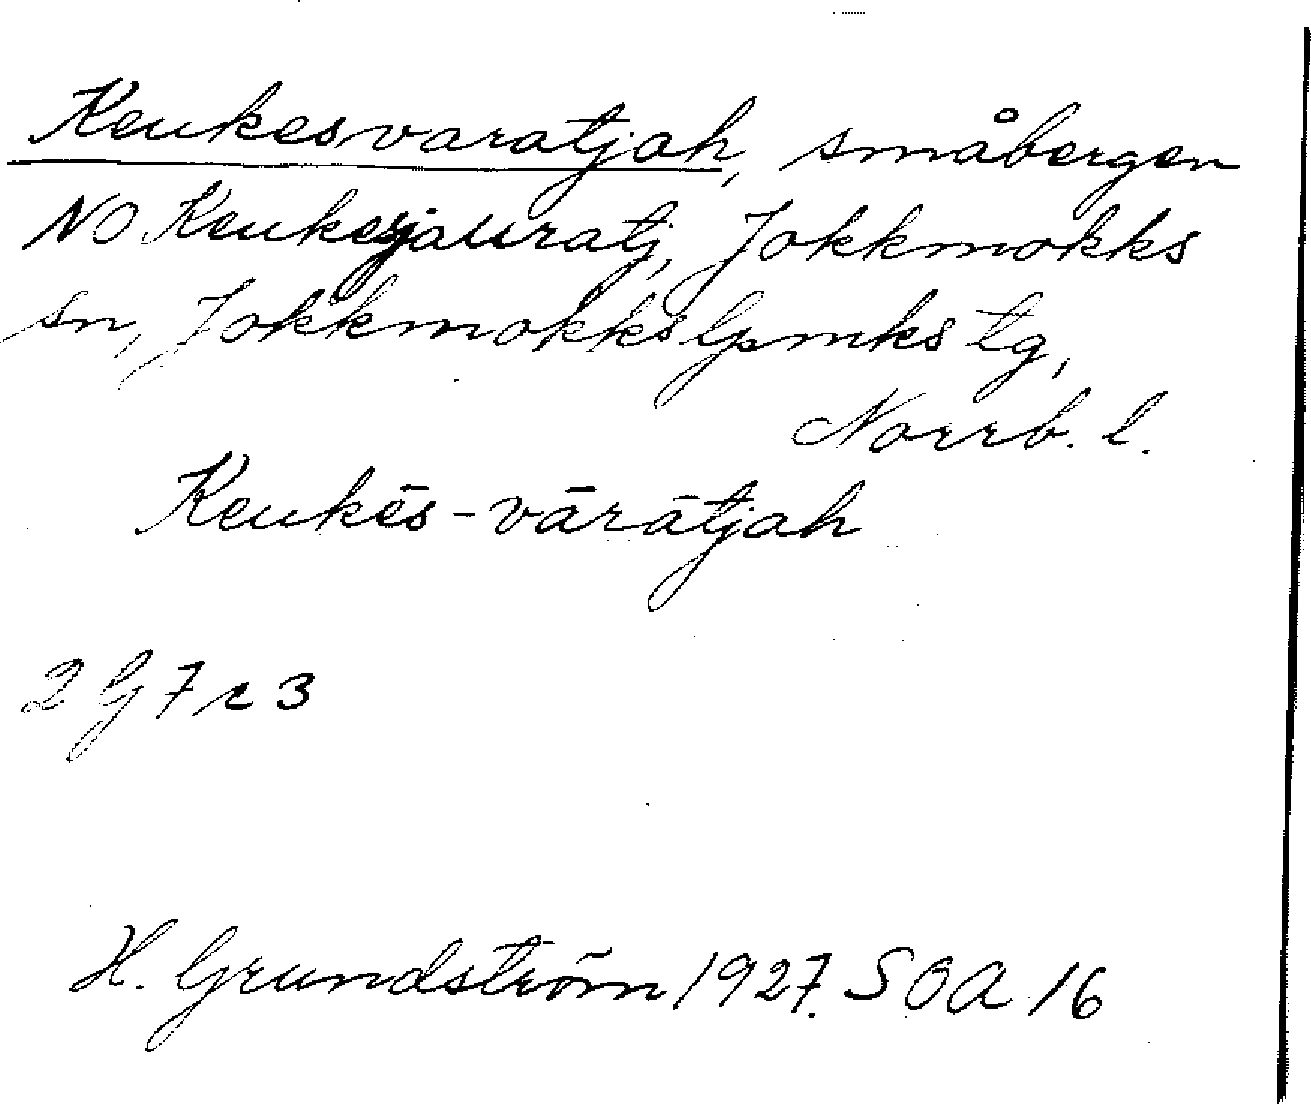 Keukesvaratjah, småbergen
NO Keukesjauratj, Jokkmokks
sn, Jokkmokks lpmks tg,
Norrb. l.
Keukēs-vārātjah
2 G 7 c 3
H. Grundström 1927. SOA 16